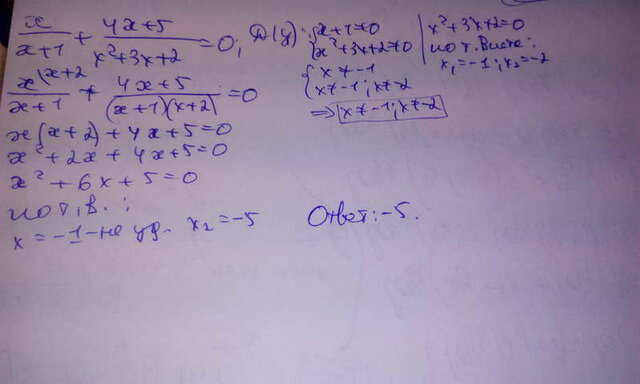 x/(x+1) + (4x+5)/(x²+3x+2) = 0; Д(у): { x+1≠0
x²+3x+2≠0
x²+3x+2=0
по т. Виета:
x₁=-1; x₂=-2
{ x≠-1
x≠-1; x≠-2
=> x≠-1; x≠-2
x\x+2/(x+1) + (4x+5)/((x+1)(x+2)) = 0
x(x+2)+4x+5=0
x²+2x+4x+5=0
x²+6x+5=0
по т. в. :
x=-1-не уд. x₂=-5
Ответ: -5.